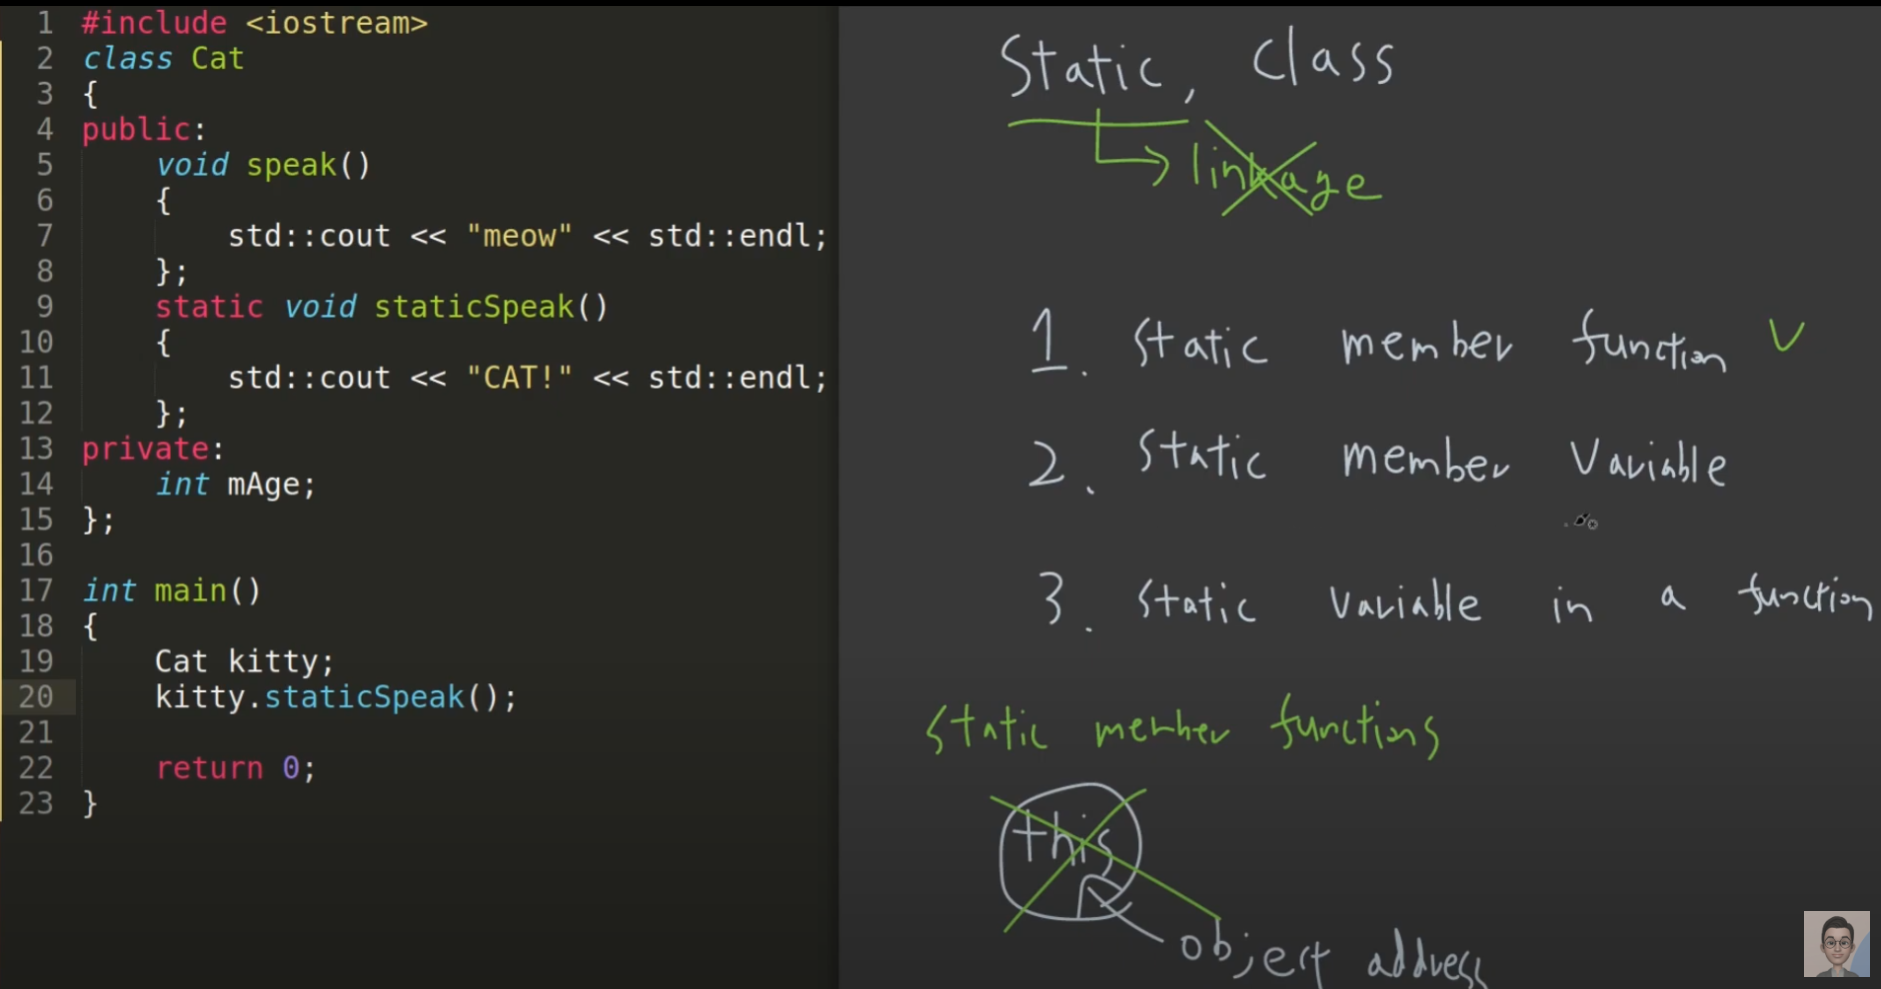 1 #include <iostream>
2 class Cat
3 {
4 public:
5 void speak()
6 {
7 std::cout << "meow" << std::endl;
8 };
9 static void staticSpeak()
10 {
11 std::cout << "CAT!" << std::endl;
12 };
13 private:
14 int mAge;
15 };
16
17 int main()
18 {
19 Cat kitty;
20 kitty.staticSpeak();
21
22 return 0;
23 }
Static, Class
linkage
1. Static member function V
2. Static member Variable
3. Static variable in a function
static member functions
this
object address